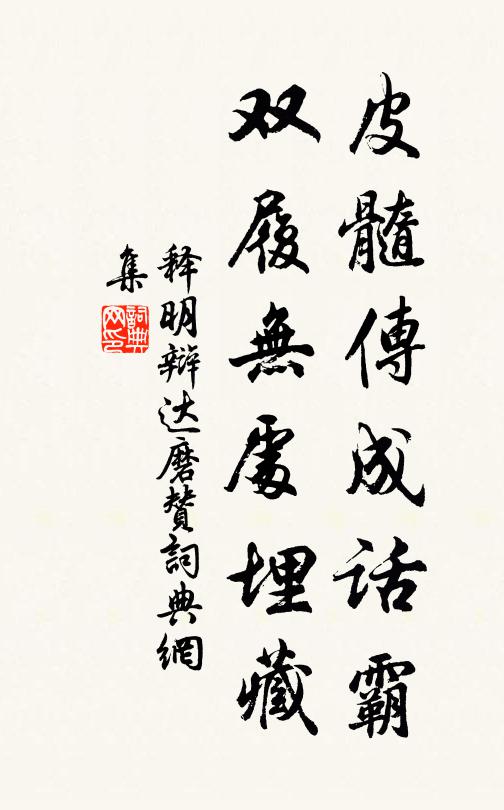 皮髓傳成话霸
双履無處埋藏
释明辩达磨贊詞典網
集
詞典网印